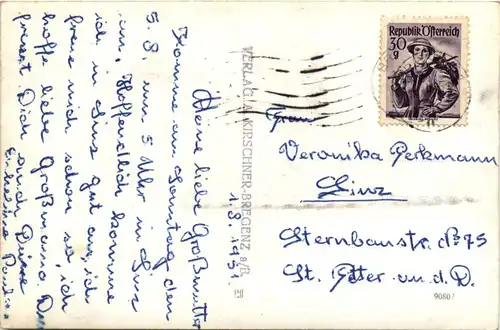 1.8.1951
Meine liebe Großmutter
Komme am Sonntag den
5.8. um 5 Uhr in Linz
an. Hoffendlich komme
ich in Linz gut an, ich
freue mich schon so, ich
hoffe liebe Großmama. Du
freust Dich auch Deine
VERLAG A. KIRSCHNER-BREGENZ a/B.
Republik Österreich
30
g
Frau
Veronika Perkmann
Linz
Sternbaustr. No 75
St. Peter a. d. D.
9080/